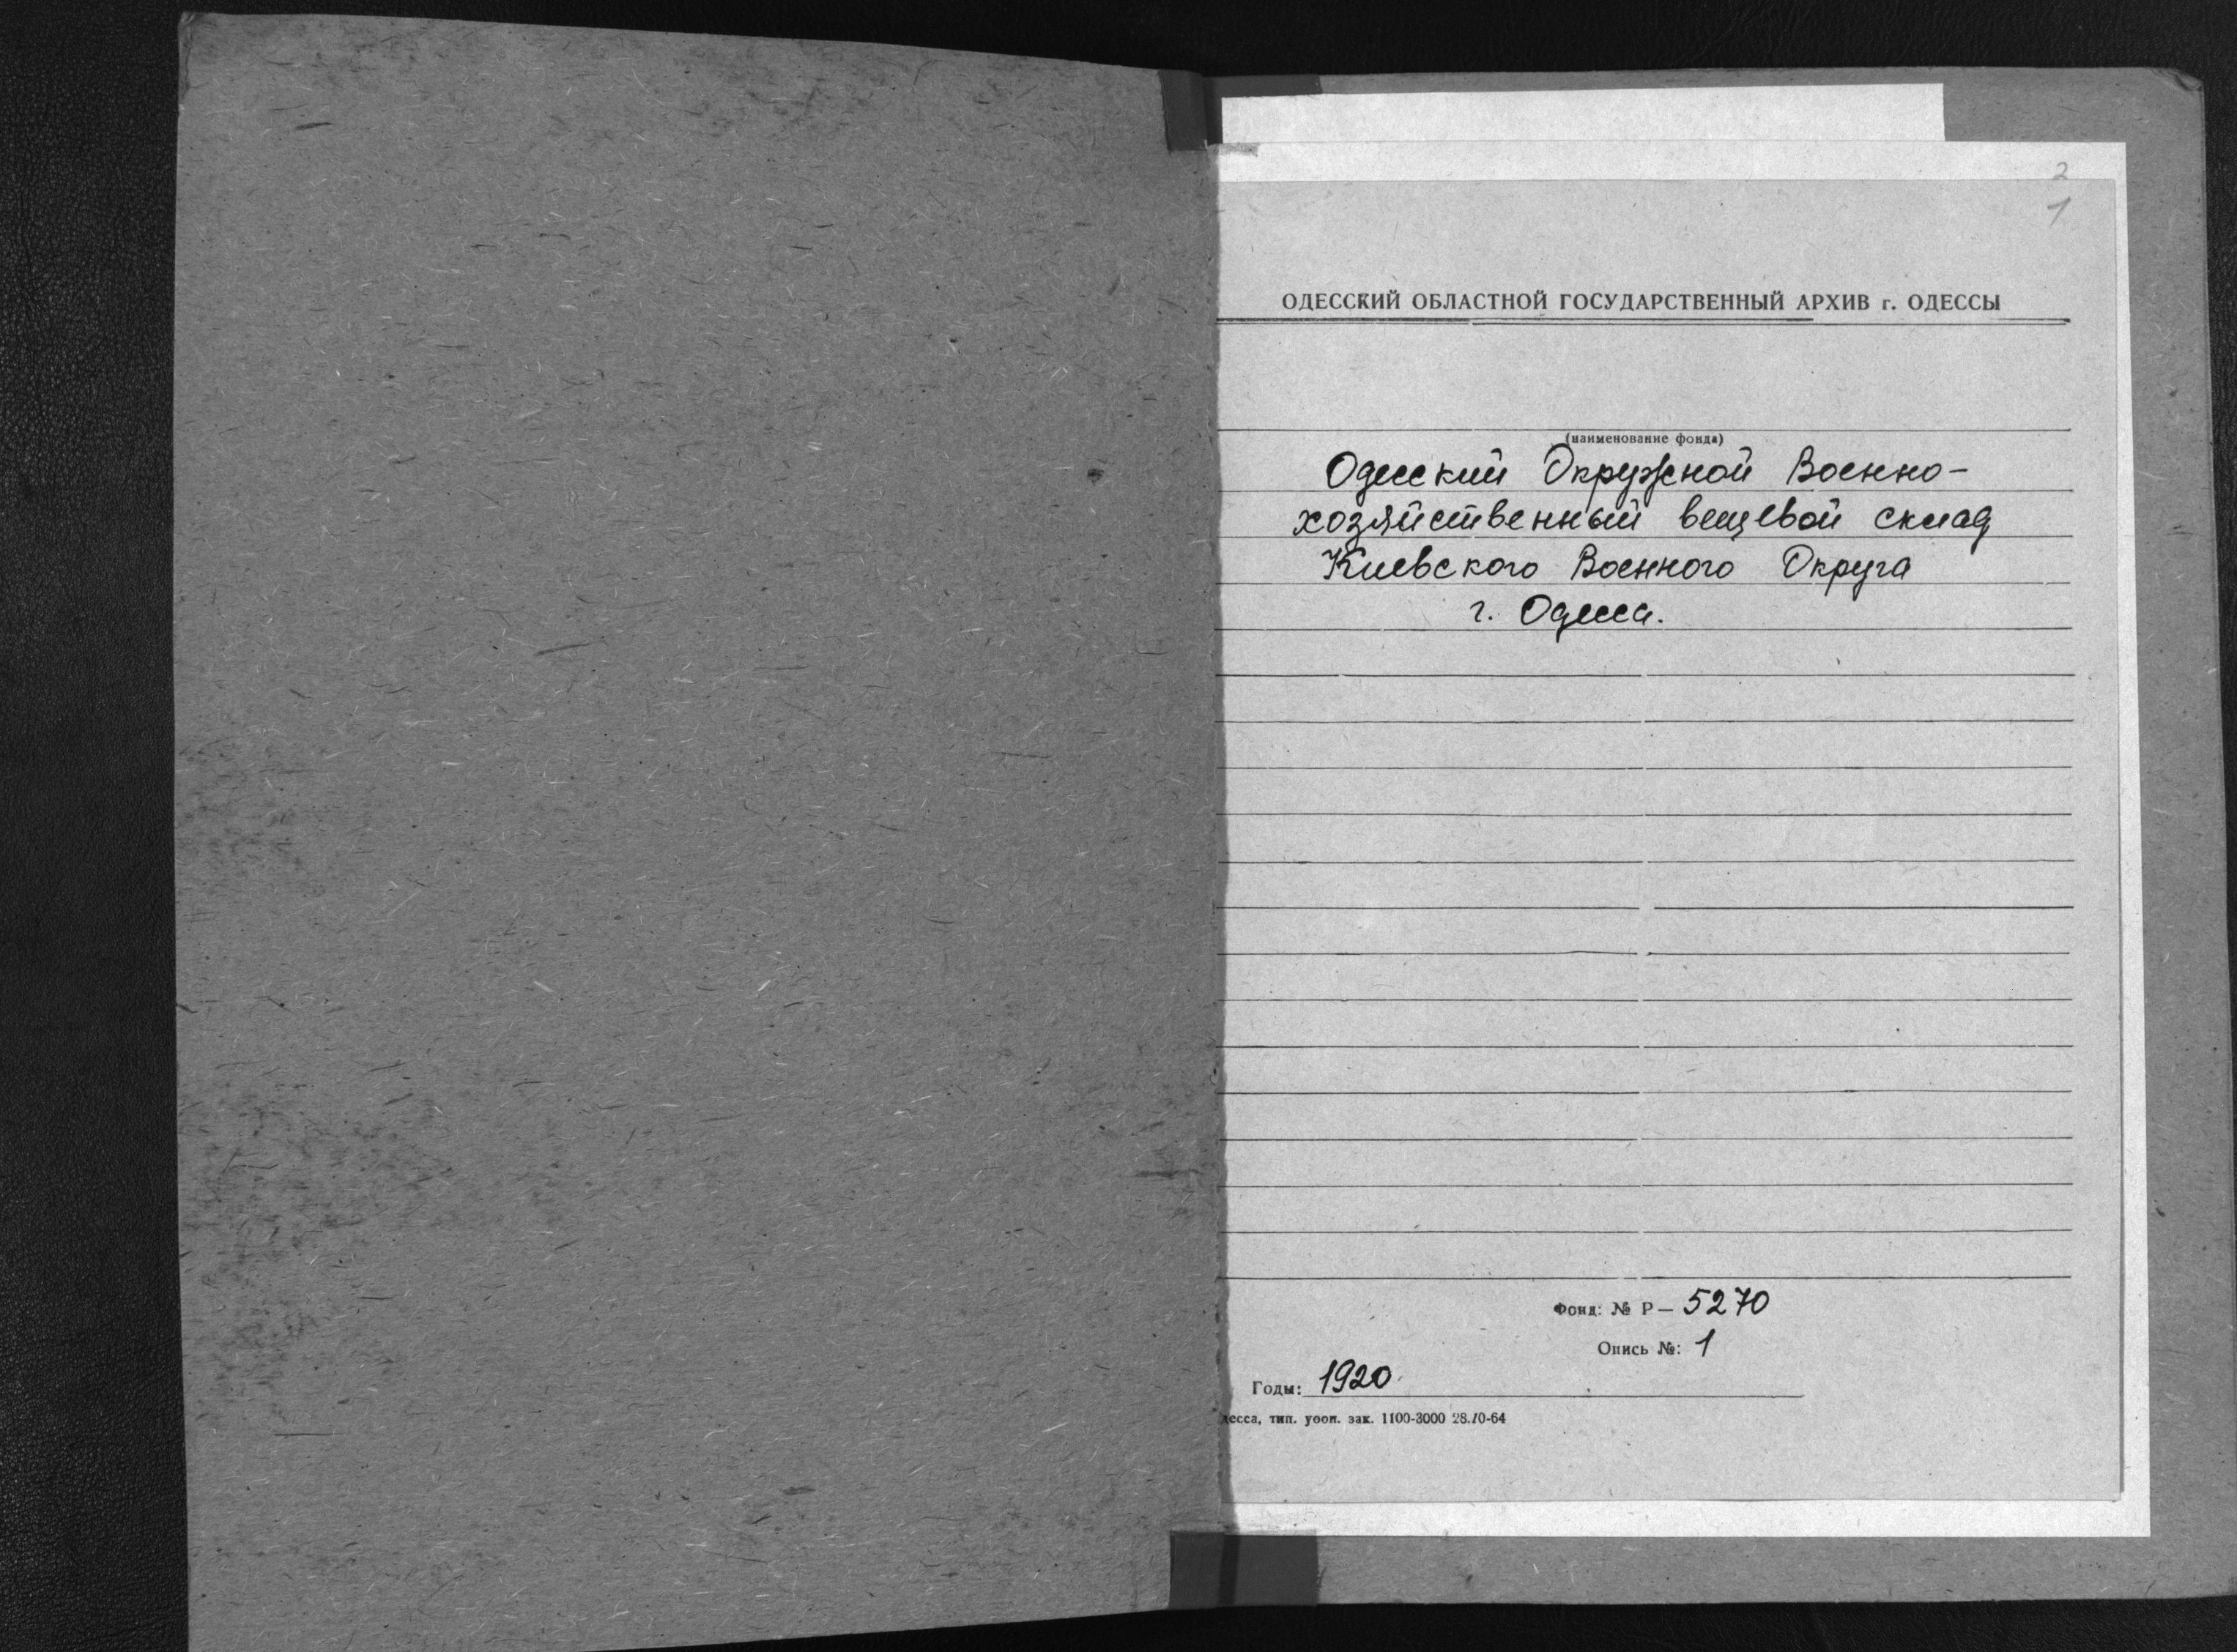 2
1
ОДЕССКИЙ ОБЛАСТНОЙ ГОСУДАРСТВЕННЫЙ АРХИВ г. ОДЕССЫ
(наименование фонда)
Одесский Окружной Военно-
хозяйственный вещевой склад
Киевского Военного Округа
г. Одесса.
Фонд: № Р— 5270
Опись №: 1
Годы: 1920
десса, тип. уооп. зак. 1100-3000 28.10-64